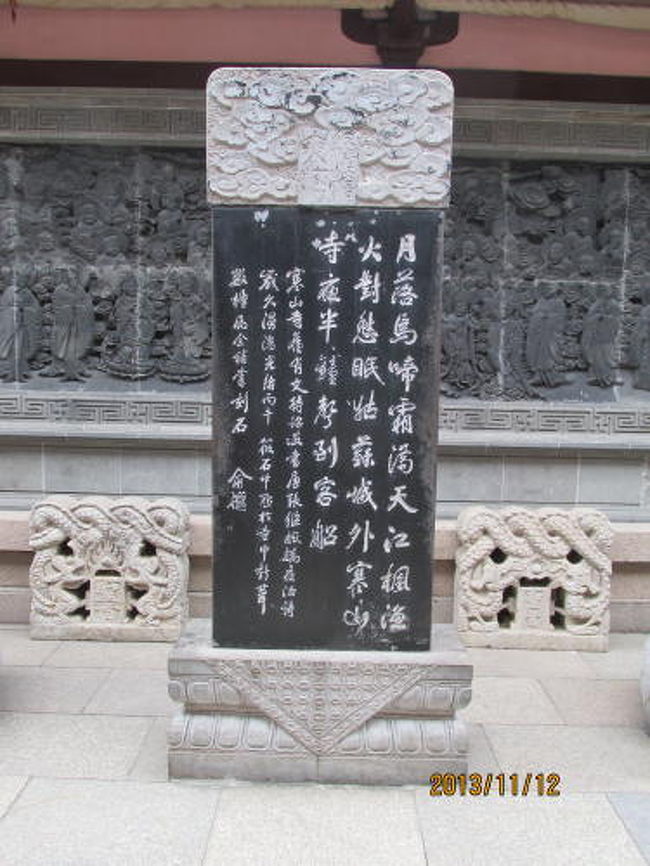 月落烏啼霜滿天江楓漁
火對愁眠姑蘇城外寒山
寺夜半鐘聲到客船
寒山寺舊有文待詔所書唐張繼楓橋夜泊詩
歲久漫漶光緒丙午筱石中丞於寺中新葺
數楹屬余補書刻石 俞樾
2013/11/12